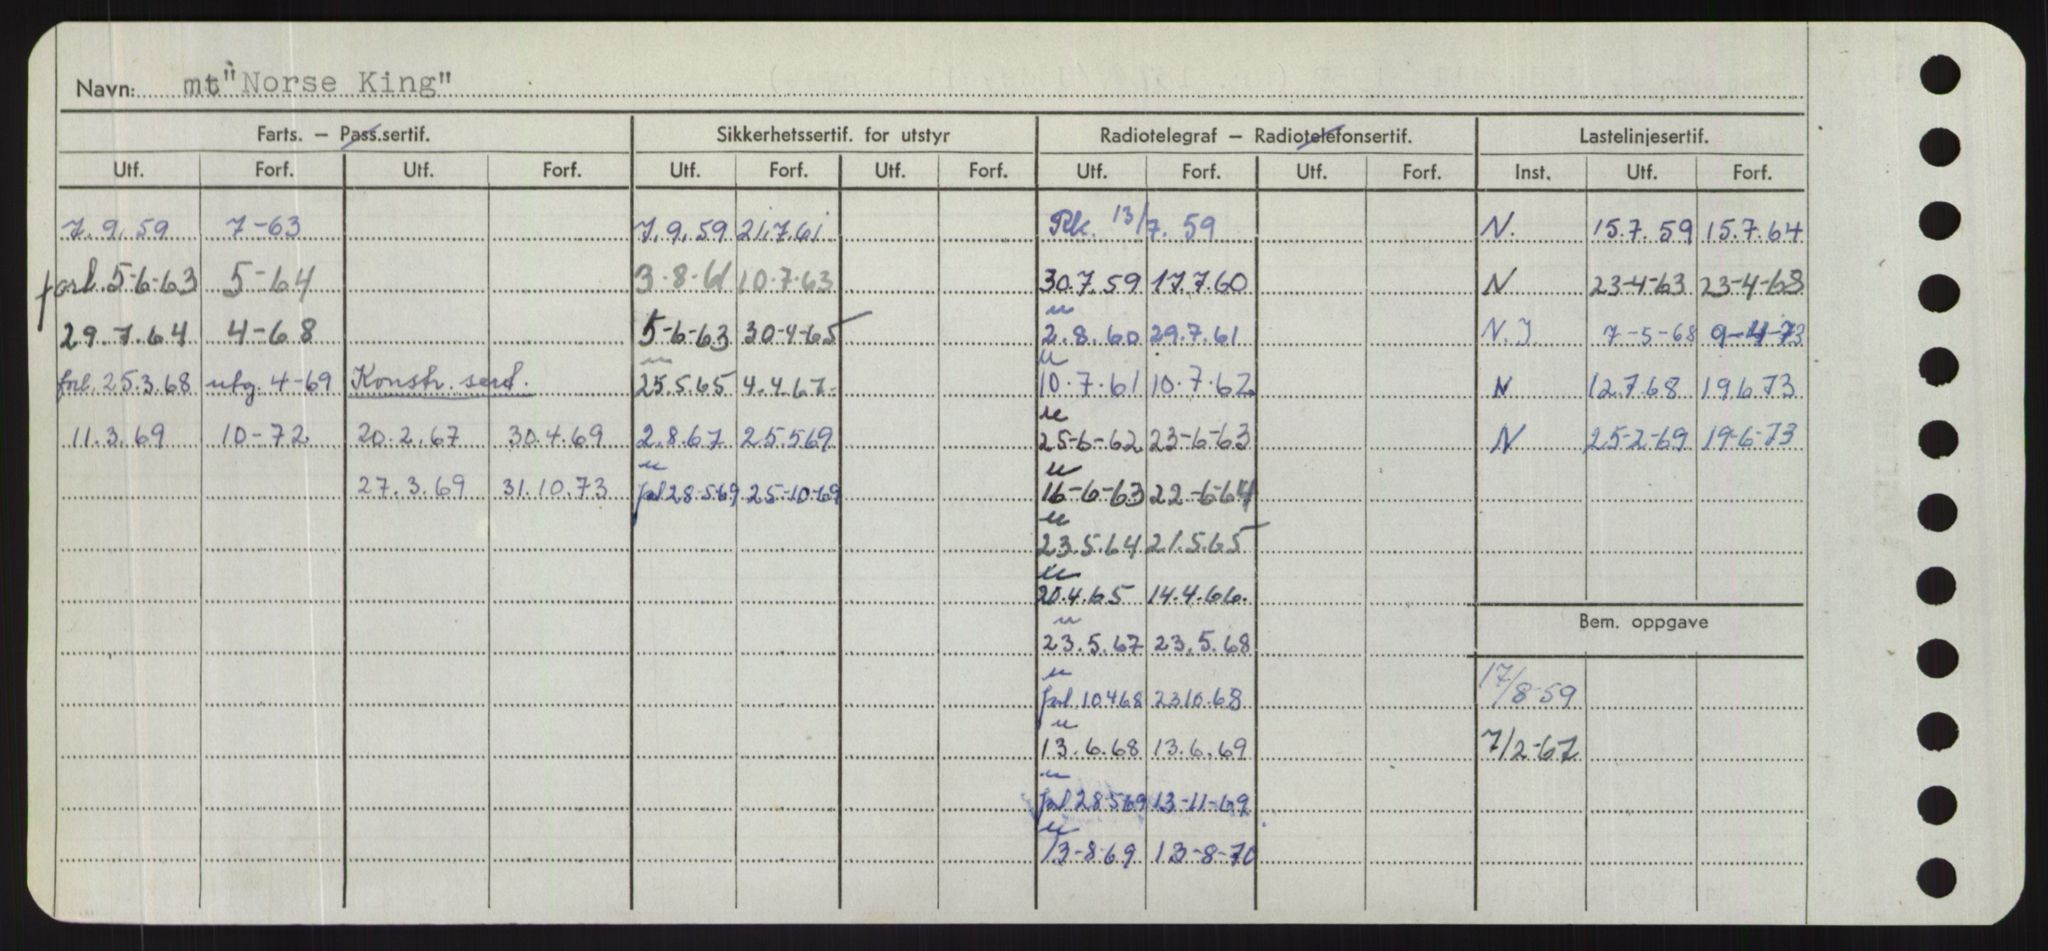 Navn: mt "Norse King"
Farts. — Pass.sertif. Sikkerhetssertif. for utstyr Radiotelegraf — Radiotelefonsertif. Lastelinjesertif.
Utf. Forf. Utf. Forf. Utf. Forf. Utf. Forf. Utf. Forf. Utf. Forf. Inst. Utf. Forf.
7.9.59 7-63 7.9.59 21.7.61 Rk. 13/7.59 N. 15.7.59 15.7.64
forl. 5-6-63 5-64 3.8.61 10.7.63 30.7.59 17.7.60 N 23-4-63 23-4-68
29.7.64 4-68 5-6-63 30-4-65 2.8.60 29.7.61 N.I 7-5-68 9-4-73
forl. 25.3.68 utg. 4-69 Konstr. sert. 25.5.65 4.4.67. 10.7.61 10.7.62 N 12.7.68 19.6.73
11.3.69 10-72 20.2.67 30.4.69 2.8.67 25.5.69 25-6-62 23-6-63 N 25-2-69 19-6-73
27.3.69 31.10.73 forl 28-5-69 25-10-69 16-6-63 22-6-64
23.5.64 21.5.65
20.4.65 14.4.66.
Bem. oppgave
23.5.67 23.5.68
forl 10.4.68 23.10.68 17/8-59
13.6.68 13.6.69 7/2-67
forl 28-5-69 13-11-69
13-8-69 13-8-70